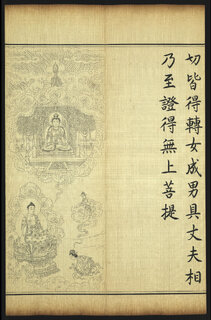 切皆得轉女成男具丈夫相
乃至證得無上菩提